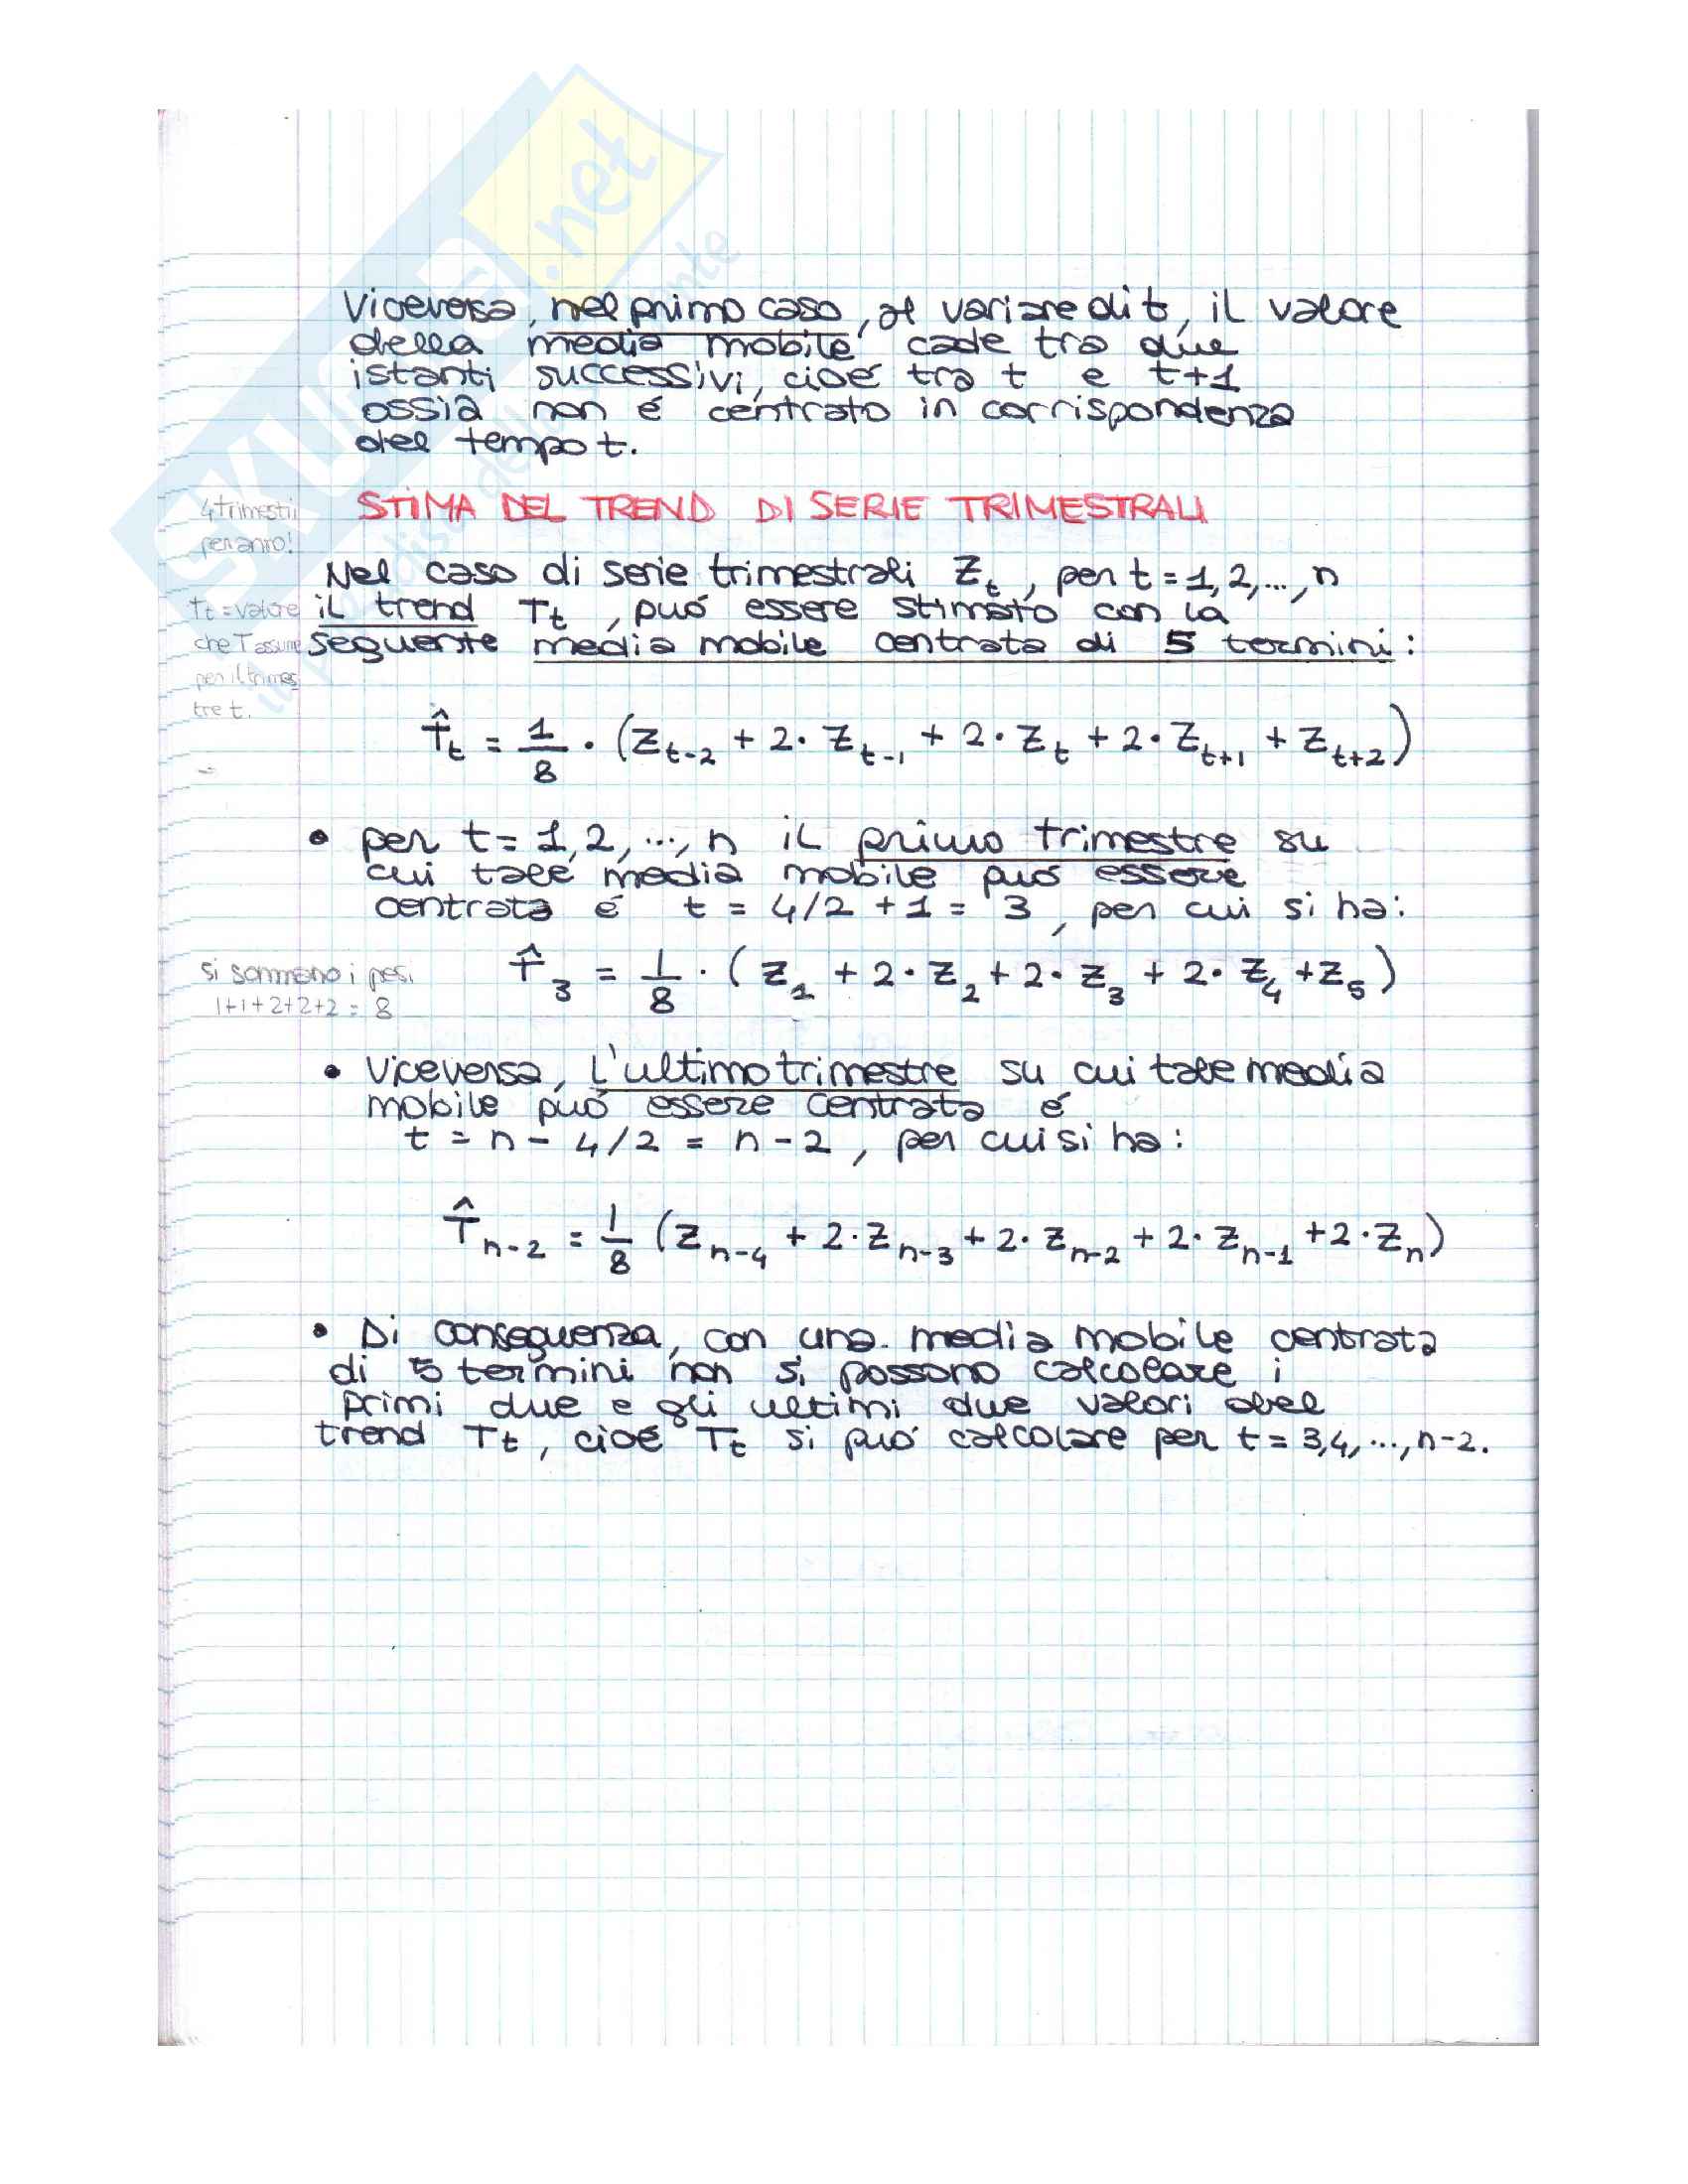 SKUOLA.net
Viceversa, nel primo caso, al variare di t, il valore
della media mobile cade tra due
istanti successivi, cioé tra t e t+1
ossia non é centrato in corrispondenza
del tempo t.
4 trimestri
per anno!
STIMA DEL TREND DI SERIE TRIMESTRALI
Nel caso di serie trimestrali Z_t, per t = 1, 2, ..., n
T_t = valore
che T assume
per il trimes
tre t.
il trend T_t, puó essere stimato con la
seguente media mobile centrata di 5 termini:
T̂_t = 1/8 · (Z_{t-2} + 2 · Z_{t-1} + 2 · Z_t + 2 · Z_{t+1} + Z_{t+2})
• per t = 1, 2, ..., n il primo trimestre su
cui tale media mobile puó essere
centrata é t = 4/2 + 1 = 3, per cui si ha:
si sommano i pesi
1+1+2+2+2 = 8
T̂_3 = 1/8 · (Z_1 + 2 · Z_2 + 2 · Z_3 + 2 · Z_4 + Z_5)
• Viceversa, l'ultimo trimestre su cui tale media
mobile puó essere centrata é
t = n - 4/2 = n - 2, per cui si ha:
T̂_{n-2} = 1/8 (Z_{n-4} + 2 · Z_{n-3} + 2 · Z_{n-2} + 2 · Z_{n-1} + 2 · Z_n)
• Di conseguenza, con una media mobile centrata
di 5 termini non si possono calcolare i
primi due e gli ultimi due valori del
trend T_t, cioé T_t si puó calcolare per t = 3, 4, ..., n-2.